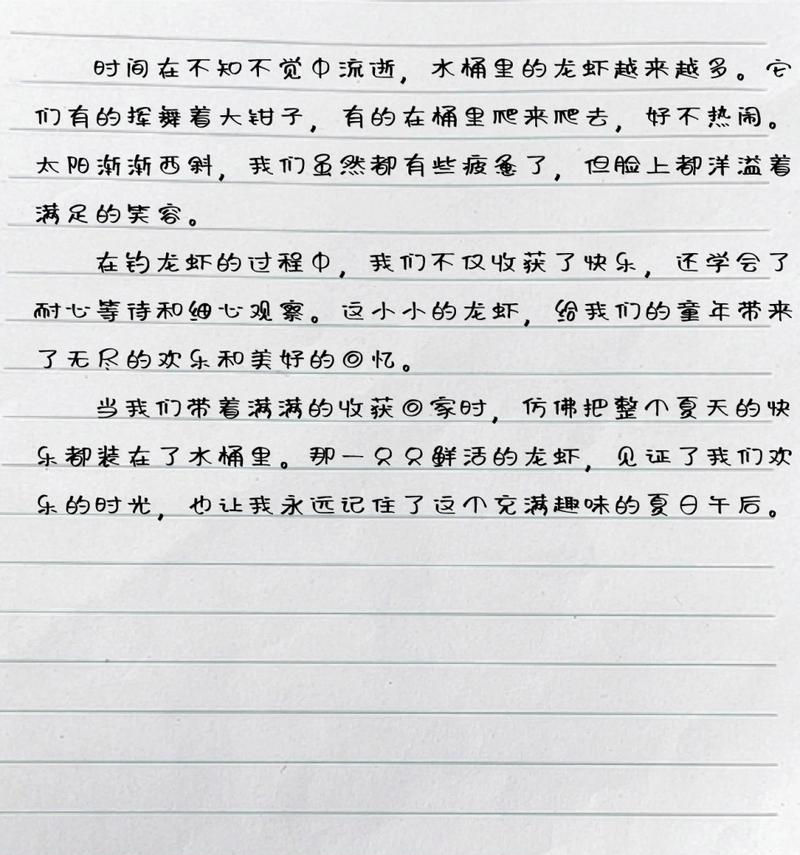 时间在不知不觉中流逝，水桶里的龙虾越来越多。它
们有的挥舞着大钳子，有的在桶里爬来爬去，好不热闹。
太阳渐渐西斜，我们虽然都有些疲惫了，但脸上都洋溢着
满足的笑容。
在钓龙虾的过程中，我们不仅收获了快乐，还学会了
耐心等待和细心观察。这小小的龙虾，给我们的童年带来
了无尽的欢乐和美好的回忆。
当我们带着满满的收获回家时，仿佛把整个夏天的快
乐都装在了水桶里。那一只只鲜活的龙虾，见证了我们欢
乐的时光，也让我永远记住了这个充满趣味的夏日午后。